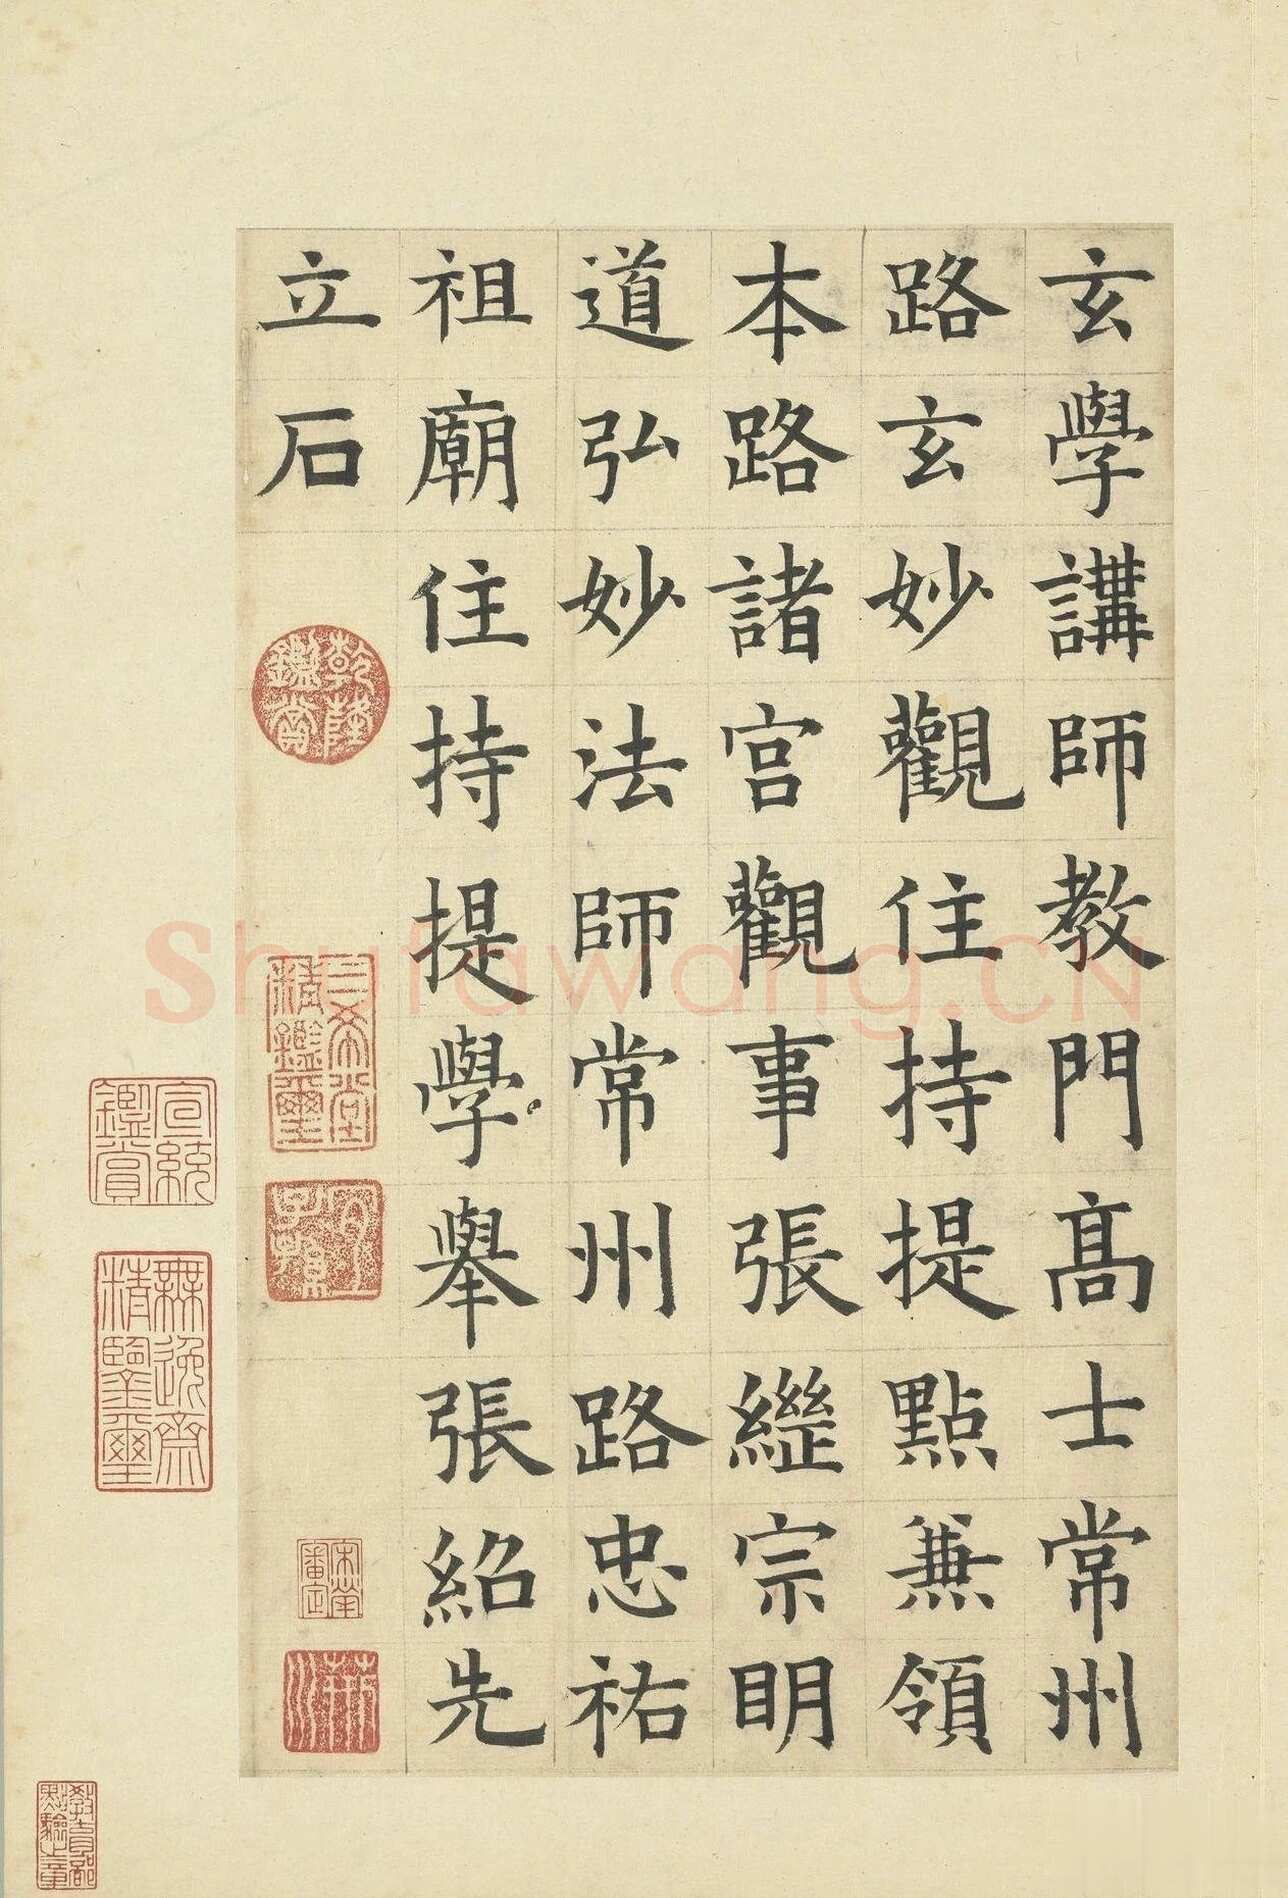 玄學講師教門髙士常州
路玄妙觀住持提點兼領
本路諸宫觀事張繼宗明
道弘妙法師常州路忠祐
祖廟住持提學舉張紹先
立石
乾隆鑑賞
三希堂精鑑璽
宜子孫
宣統鑑賞
無逸齋精鑒璽
宋犖審定
教育部點驗之章
Shufawang.CN